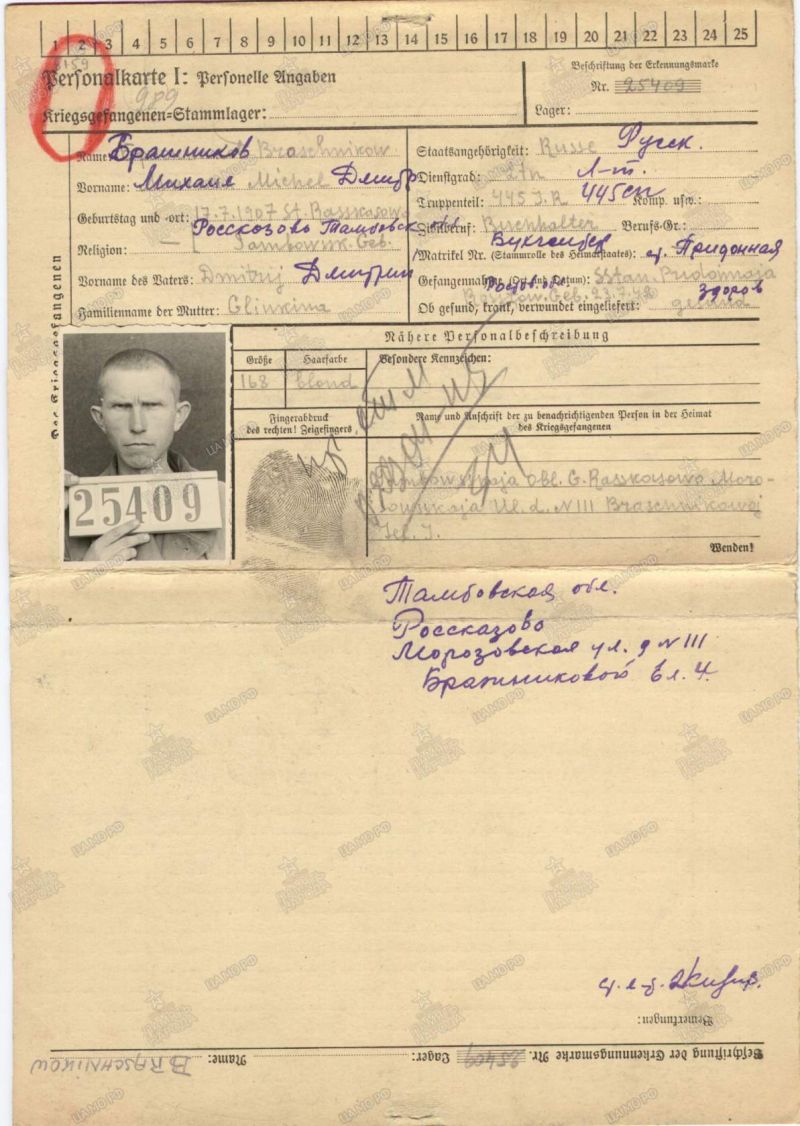 1 2 3 4 5 6 7 8 9 10 11 12 13 14 15 16 17 18 19 20 21 22 23 24 25
Personalkarte I: Personelle Angaben
Beschriftung der Erkennungsmarke
Nr. 25409
989
Kriegsgefangenen-Stammlager:
Lager:
Бражников
Name: Braschnikow
Staatsangehörigkeit: Russe Русск.
Vorname: Михаил Michel Дмитр
Dienstgrad: Ltn Л-т.
Truppenteil: 445 J.R 445сп Komp. usw.:
Geburtstag und -ort: 17.7.1907 St. Rasskasowo
Россказово Тамбовск
Zivilberuf: Buchhalter Berufs-Gr.:
Бухгалтер
Religion: — Tambowsk. Geb.
Matrikel Nr. (Stammrolle des Heimatstaates): ст. Придонная
Vorname des Vaters: Dmitrij Дмитрий
Gefangennahme (Ort und Datum): SStan. Pridonnaja
Familienname der Mutter: Glinkina
Ob gesund, krank, verwundet eingeliefert: gesund
здоров
Des Kriegsgefangenen
Nähere Personalbeschreibung
Größe Haarfarbe Besondere Kennzeichen:
168 blond
Fingerabdruck
des rechten! Zeigefingers
Name und Anschrift der zu benachrichtigenden Person in der Heimat
des Kriegsgefangenen
25409
Tambowskaja obl. G. Rasskasowo Moro-
sowskaja Ul. d. N 111 Braschnikowoj
Wenden!
Тамбовская обл.
Россказово
Морозовская ул. д N 111
Бражниковой
Bemerkungen:
Beschriftung der Erkennungsmarke Nr. 25409 Lager: Name: BRASCHNIKOW
ЦАМО.РФ